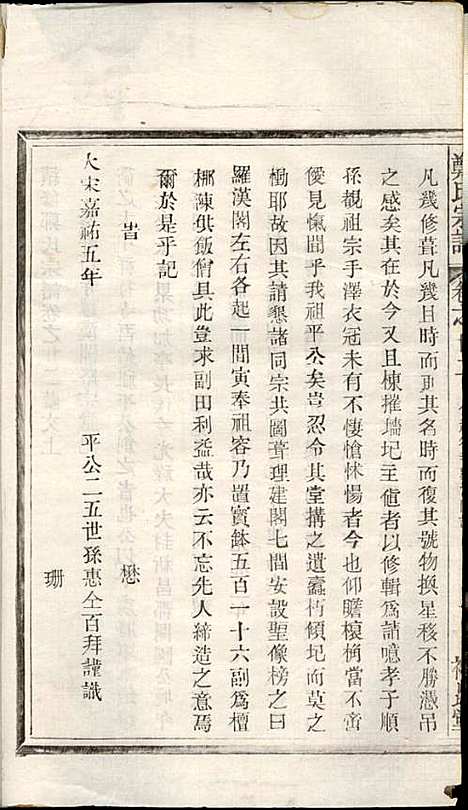 鄭氏宗譜
凡幾修葺凡幾日時而更其名時而復其號物換星移不勝憑吊
之感矣其在於今又且棟摧墻圮主僧者以修輯爲請噫孝子順
孫覩祖宗手澤衣冠未有不悽愴怵惕者今也仰瞻榱桷當不需
僾見愾聞乎我祖平公矣豈忍令其堂搆之遺蠹朽傾圮而莫之
慟耶故因其請懇諸同宗共圖葺理建閣七間安設聖像榜之曰
羅漢閣左右各起一間寅奉祖容乃置寳鉢五百一十六副爲檀
梛陳供飯僧具此豈求副田利益哉亦云不忘先人締造之意焉
爾於是乎記
旹　懋
大宋嘉祐五年　平公二五世孫惠仝百拜謹識
珊